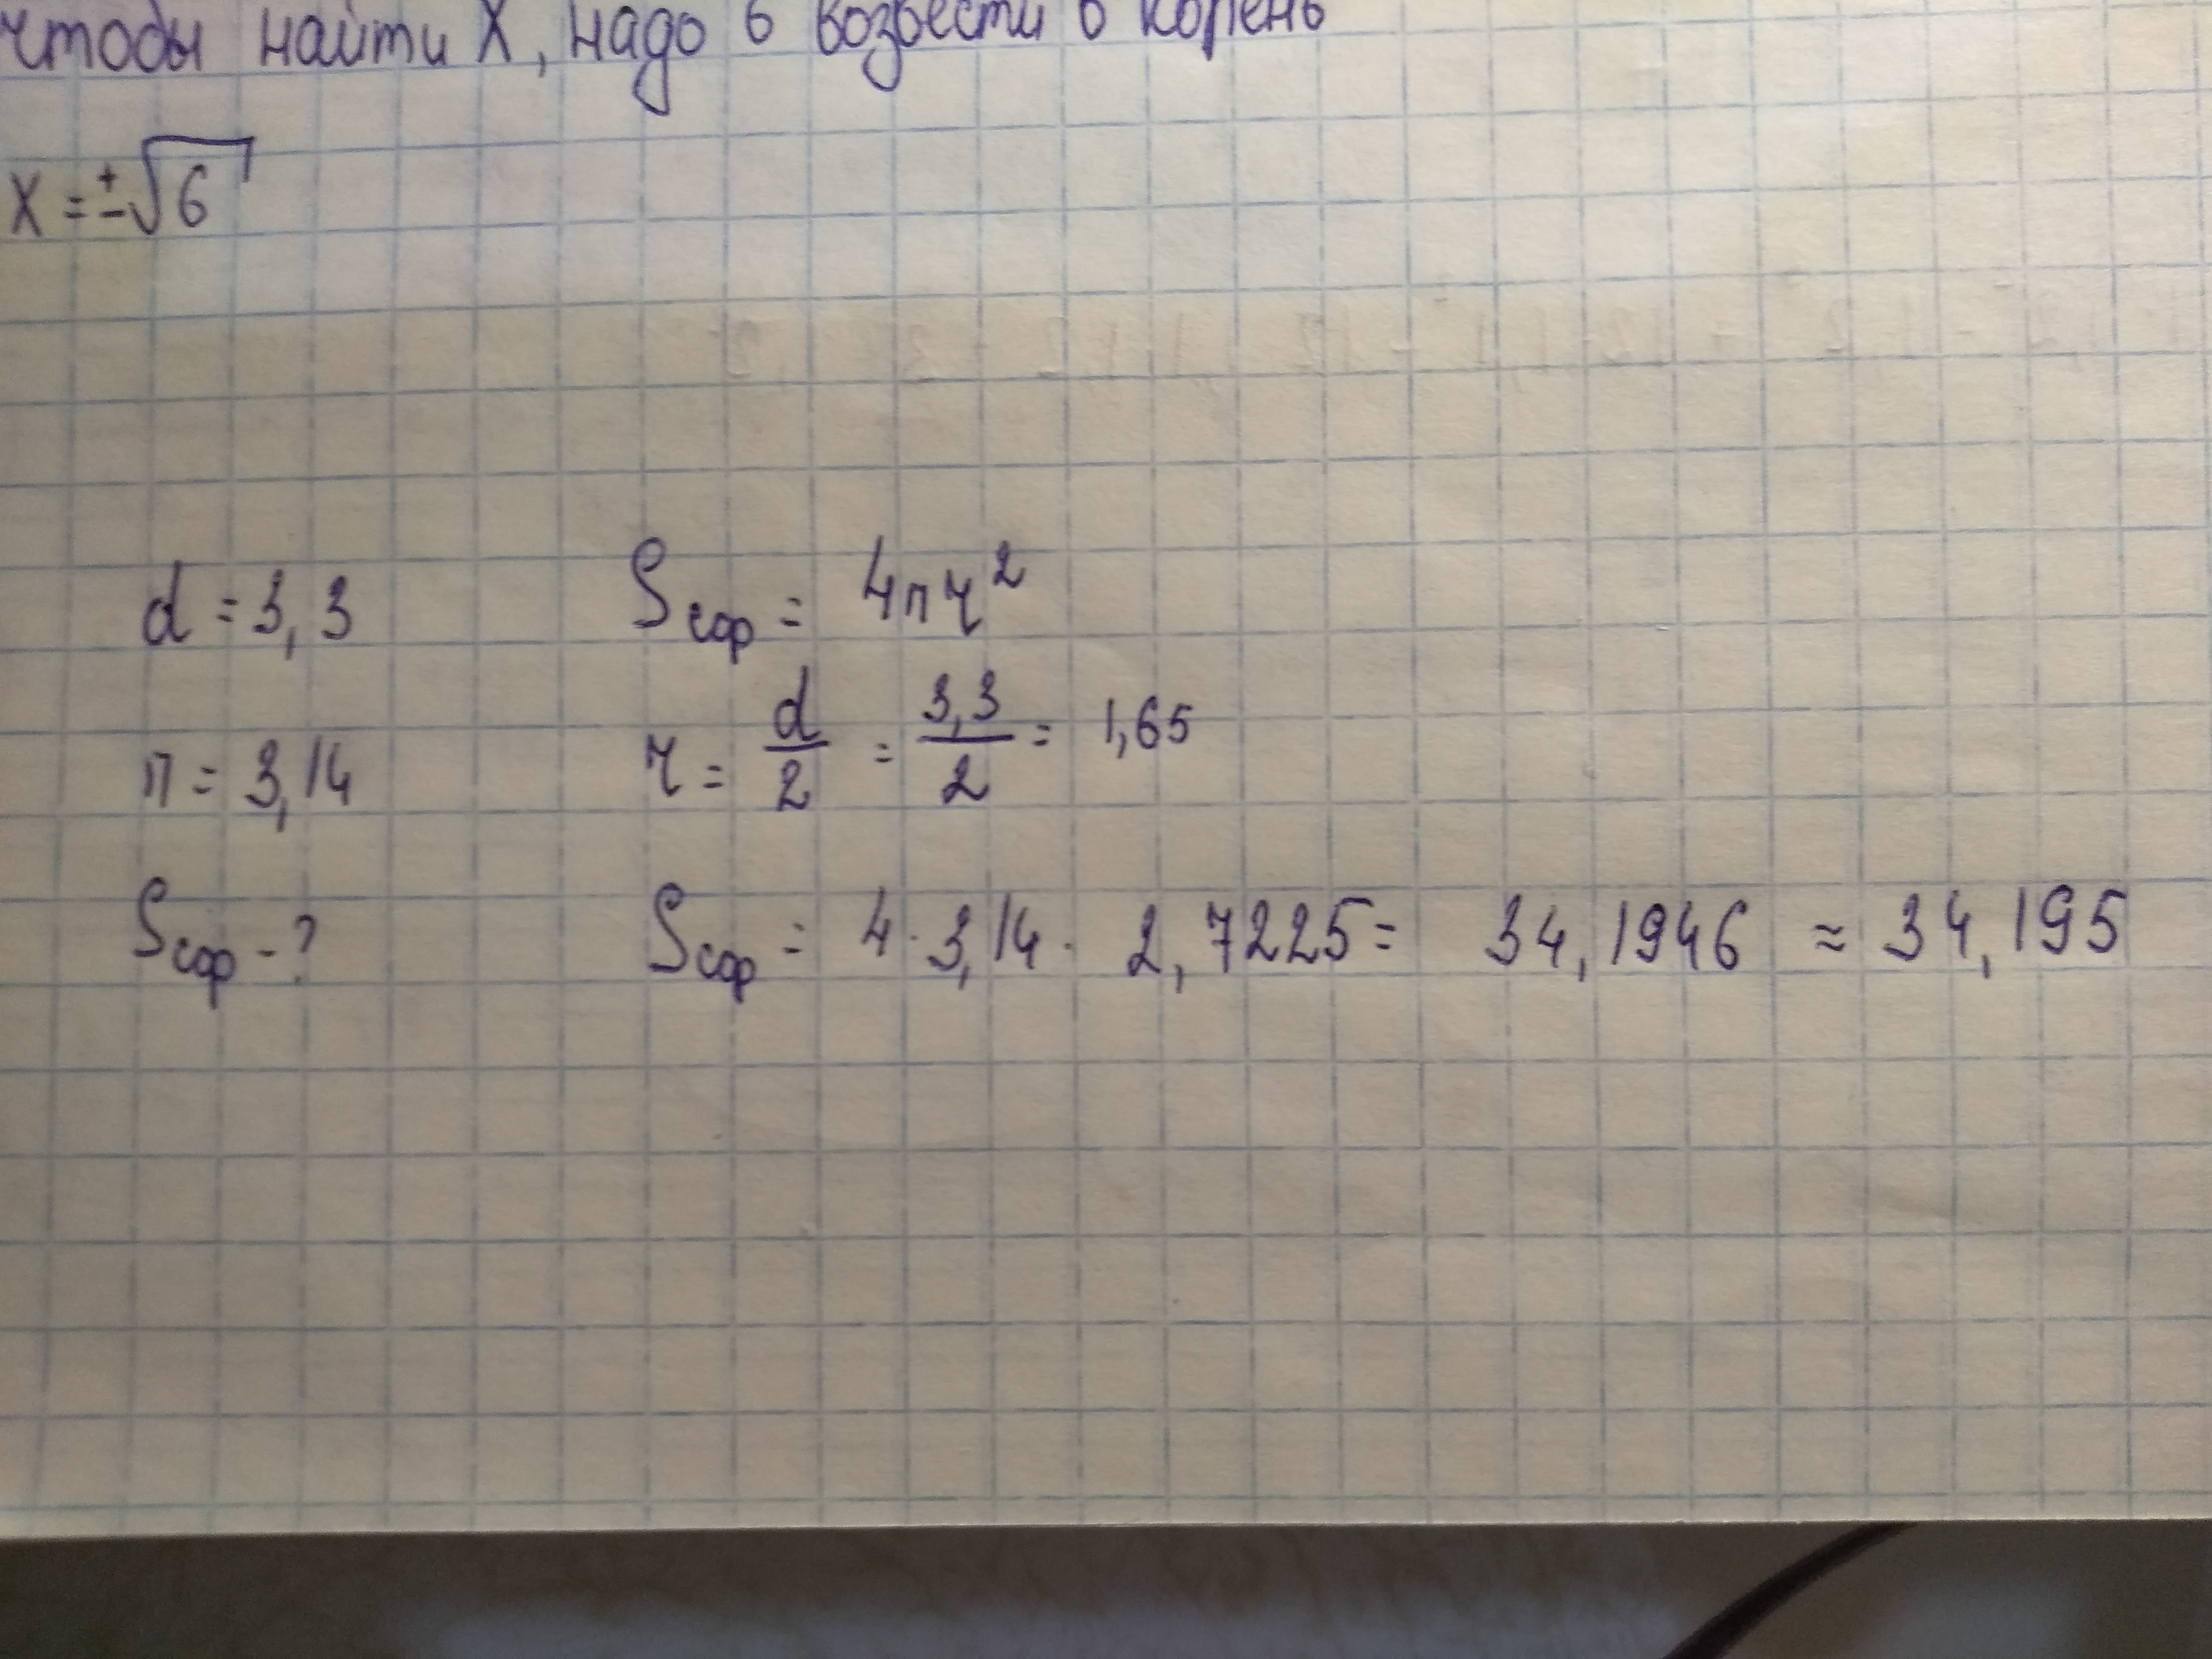 чтобы найти X, надо 6 возвести в корень
X = ±√6
d = 3,3 Sсфр = 4πr²
π = 3,14 r = d/2 = 3,3/2 = 1,65
Sсфр - ? Sсфр = 4 · 3,14 · 2,7225 = 34,1946 ≈ 34,195